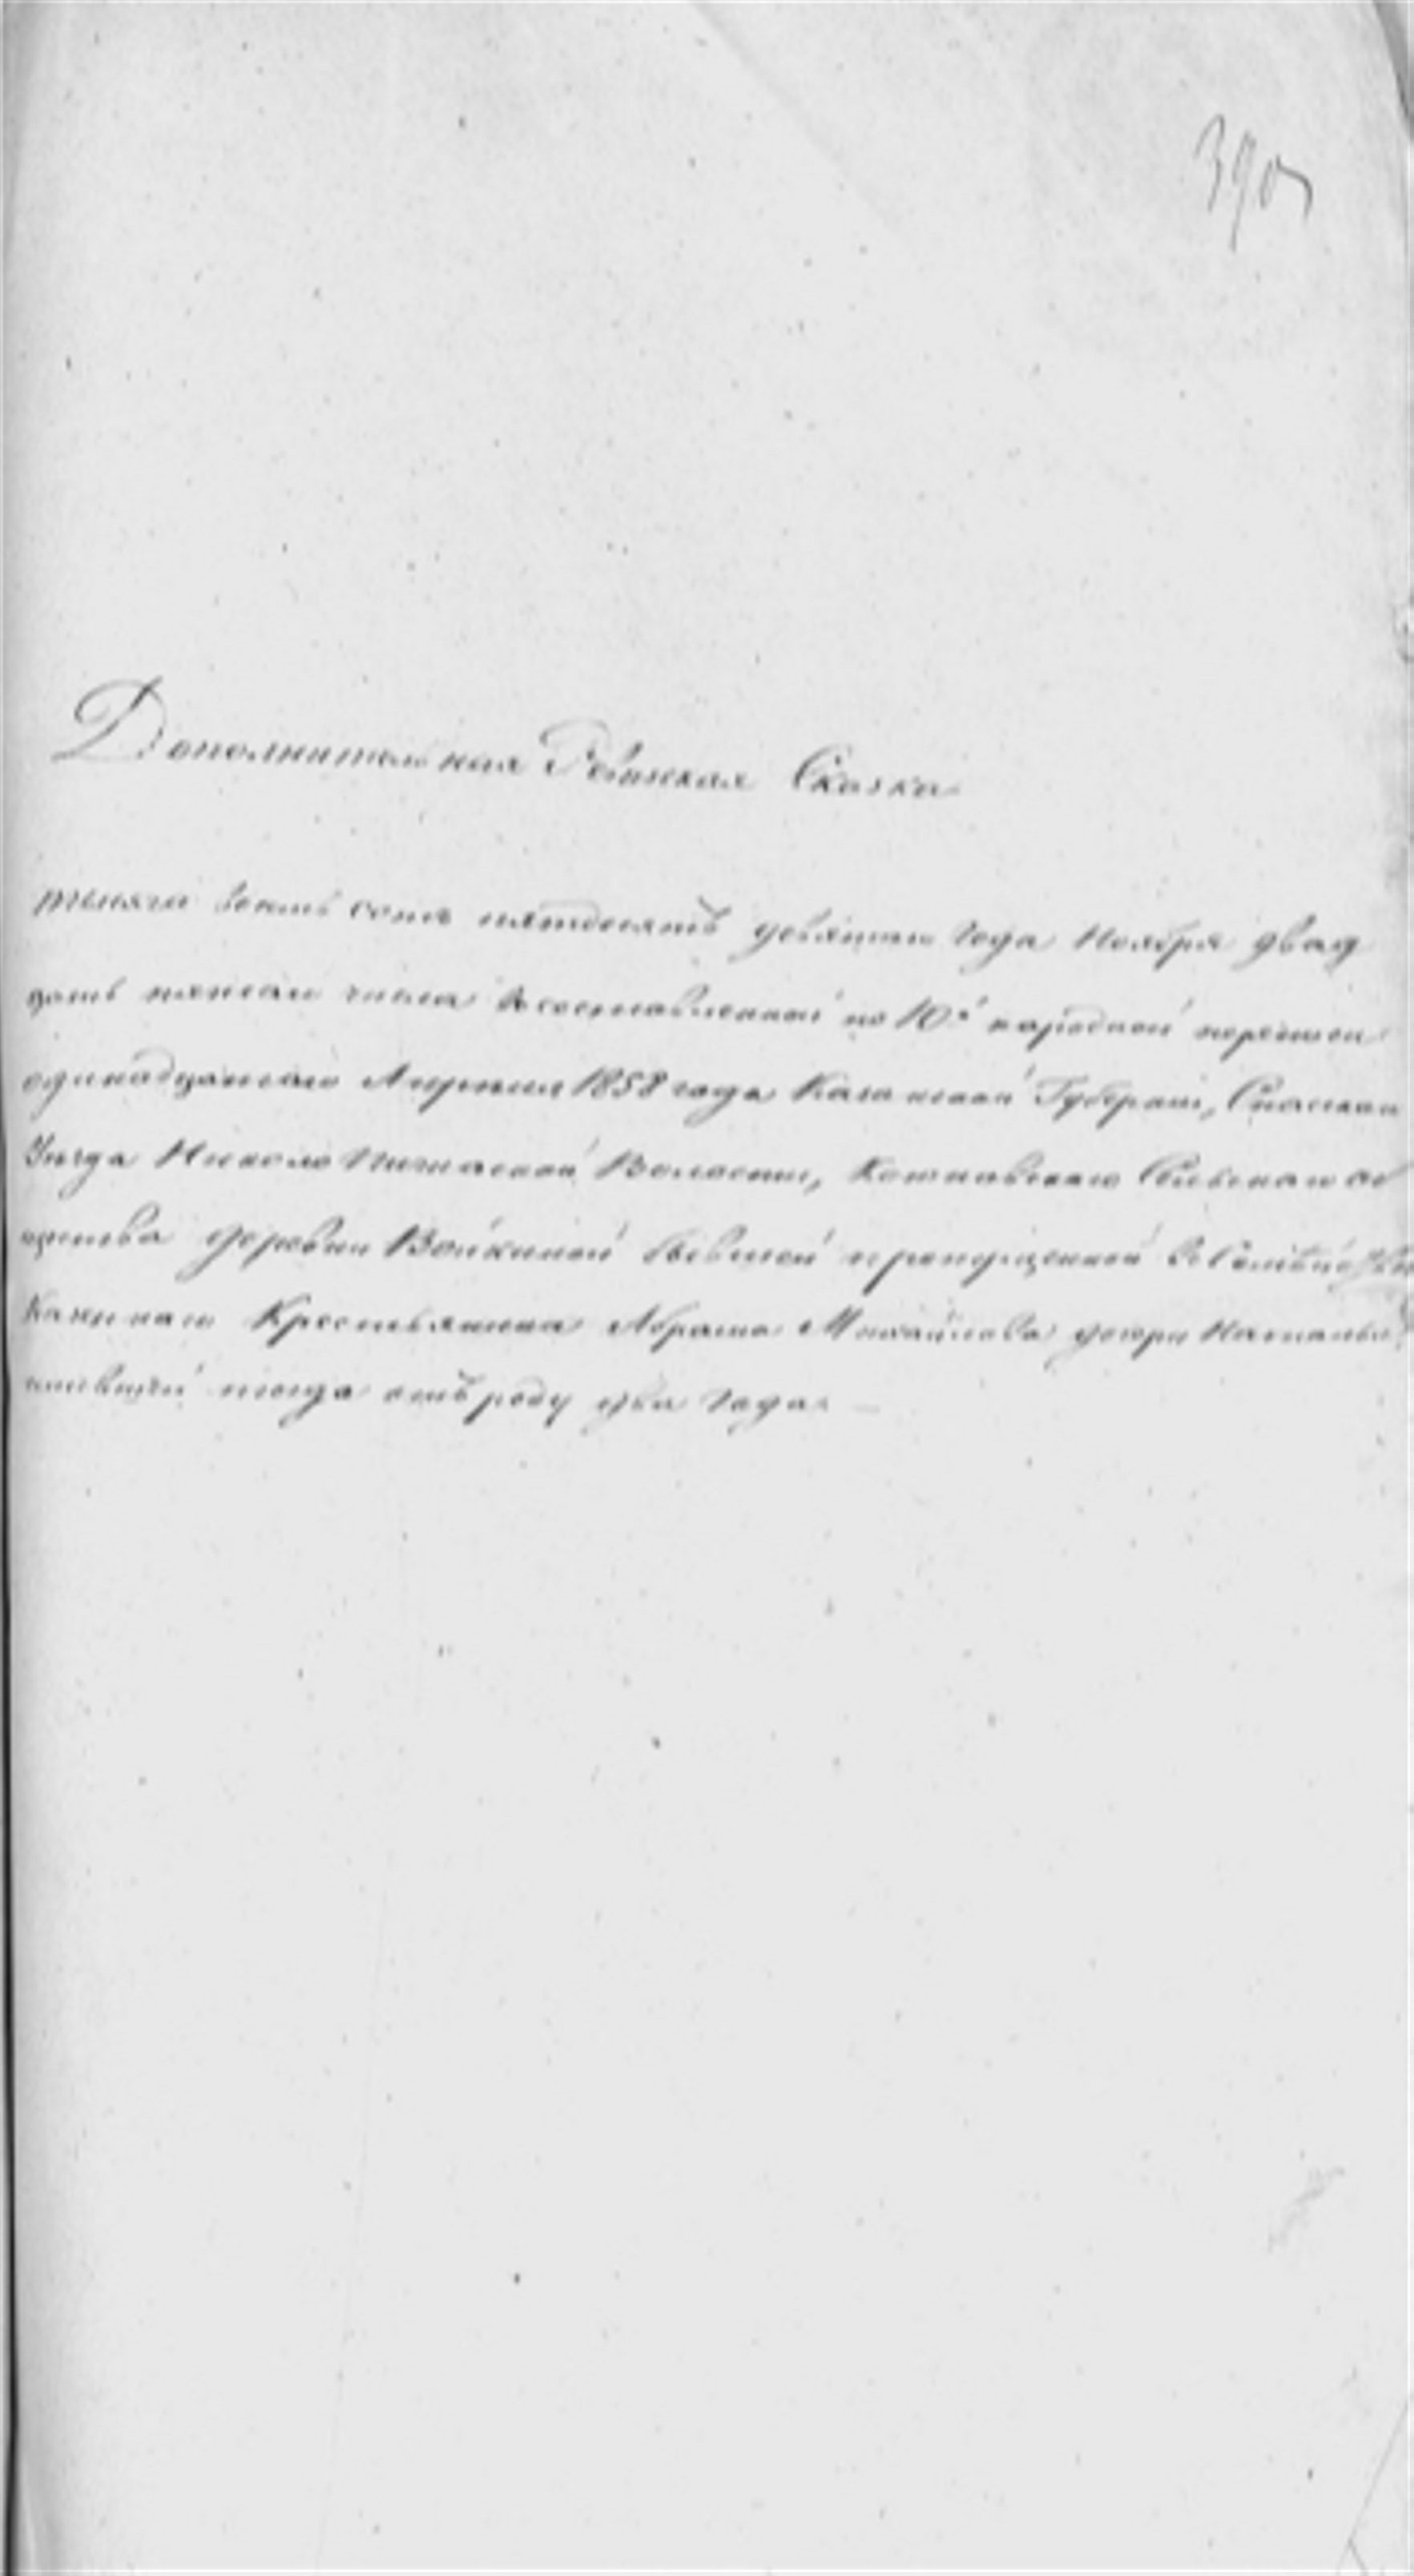 390
Дополнительная Ревизская Сказка
тысяча восемь сотъ пятдесятъ девятаго года Ноября двад
цать пятаго числа к составленной по 10й народной переписи
одинадцатаго Апреля 1858 года Казанской Губерніи, Спаскаго
Уезда Николо Волости, Сельскаго об
щества деревни Войкиной бывшей пропущенной
Крестьянина Абрама Михайлова дочери Натальи
имевшей тогда отъ роду два года.